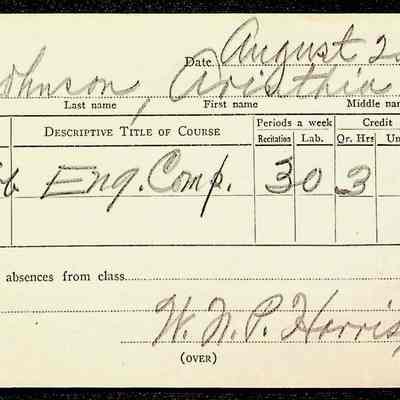 Date August 2
Johnson, Aristhia
Last name First name Middle nam
DESCRIPTIVE TITLE OF COURSE Periods a week Credit
Recitation Lab. Qr. Hrs Un
6 Eng. Comp. 3 0 3
absences from class
W. N. P. Harris
(OVER)